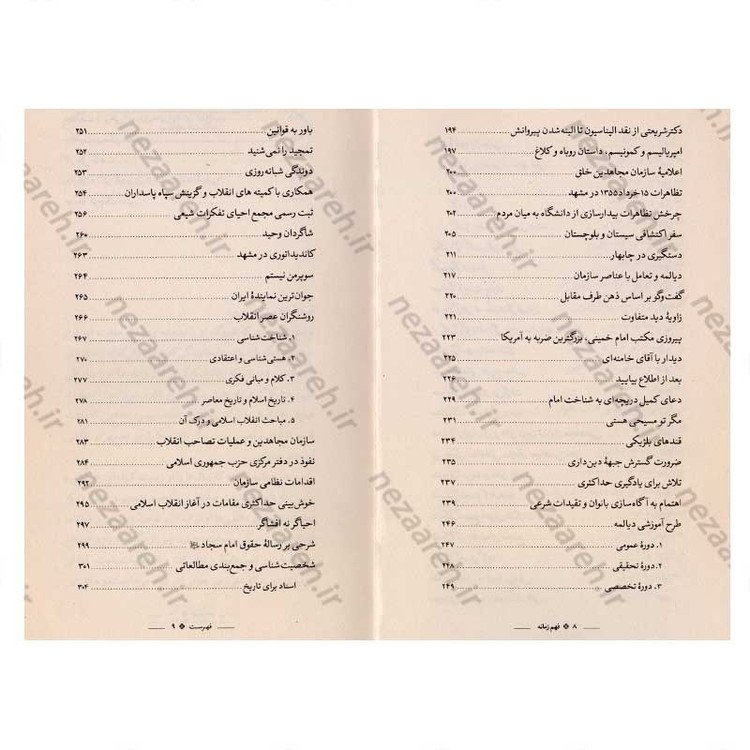 دکتر شریعتی از نقد الیناسیون تا الینه شدن پیروانش ۱۹۴
امپریالیسم و کمونیسم، داستان روباه و کلاغ ۱۹۷
اعلامیهٔ سازمان مجاهدین خلق ۲۰۰
تظاهرات ۱۵ خرداد ۱۳۵۵ در مشهد ۲۰۰
چرخش تظاهرات بیدارسازی از دانشگاه به میان مردم ۲۰۲
سفر اکتشافی سیستان و بلوچستان ۲۰۵
دستگیری در چابهار ۲۱۱
دیالمه و تعامل با عناصر سازمان ۲۱۷
گفت‌وگو بر اساس ذهن طرف مقابل ۲۲۰
زاویهٔ دید متفاوت ۲۲۱
پیروزی مکتب امام خمینی، بزرگترین ضربه به آمریکا ۲۲۳
دیدار با آقای خامنه‌ای ۲۲۵
بعد از اطلاع بیایید ۲۲۶
دعای کمیل دریچه‌ای به شناخت امام ۲۲۹
مگر تو مسیحی هستی ۲۳۱
قندهای بلژیکی ۲۳۴
ضرورت گسترش جبههٔ دین‌داری ۲۳۵
تلاش برای یادگیری حداکثری ۲۳۷
اهتمام به آگاه‌سازی بانوان و تقیدات شرعی ۲۳۹
طرح آموزشی دیالمه ۲۴۶
۱. دورهٔ عمومی ۲۴۷
۲. دورهٔ تحقیقی ۲۴۸
۳. دورهٔ تخصصی ۲۴۹
۸ ❖ فهم زمانه
باور به قوانین ۲۵۱
تمجید را نمی‌شنید ۲۵۲
دوندگی شبانه‌روزی ۲۵۳
همکاری با کمیته های انقلاب و گزینش سپاه پاسداران ۲۵۴
ثبت رسمی مجمع احیای تفکرات شیعی ۲۵۶
شاگردان وحید ۲۶۰
کاندیداتوری در مشهد ۲۶۳
سوپرمن نیستم ۲۶۴
جوان‌ترین نمایندهٔ ایران ۲۶۵
روشنگران عصر انقلاب ۲۶۶
۱. شناخت‌شناسی ۲۶۷
۲. هستی‌شناسی و اعتقادی ۲۷۰
۳. کلام و مبانی فکری ۲۷۷
۴. تاریخ اسلام و تاریخ معاصر ۲۷۸
۵. مباحث انقلاب اسلامی و درک آن ۲۸۱
سازمان مجاهدین و عملیات تصاحب انقلاب ۲۸۳
نفوذ در دفتر مرکزی حزب جمهوری اسلامی ۲۸۴
اقدامات نظامی سازمان ۲۹۲
خوش‌بینی حداکثری مقامات در آغاز انقلاب اسلامی ۲۹۵
احیاگر نه افشاگر ۲۹۷
شرحی بر رسالهٔ حقوق امام سجاد ۲۹۹
شخصیت‌شناسی و جمع‌بندی مطالعاتی ۳۰۱
اسناد برای تاریخ ۳۰۴
فهرست ❖ ۹
nezaareh.ir